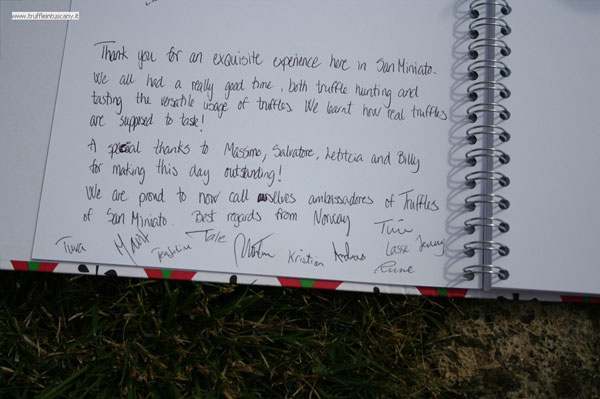 www.truffleintuscany.it
Thank you for an exquisite experience here in San Miniato.
We all had a really good time, both truffle hunting and
tasting the versatile usage of truffles. We learnt how real truffles
are supposed to taste!
A special thanks to Massimo, Salvatore, Letitcia and Billy
for making this day outstanding!
We are proud to now call ourselves ambassadores of Truffles
of San Miniato. Best regards from Norway
Kristian Andreas Lasse Jenny
Rune